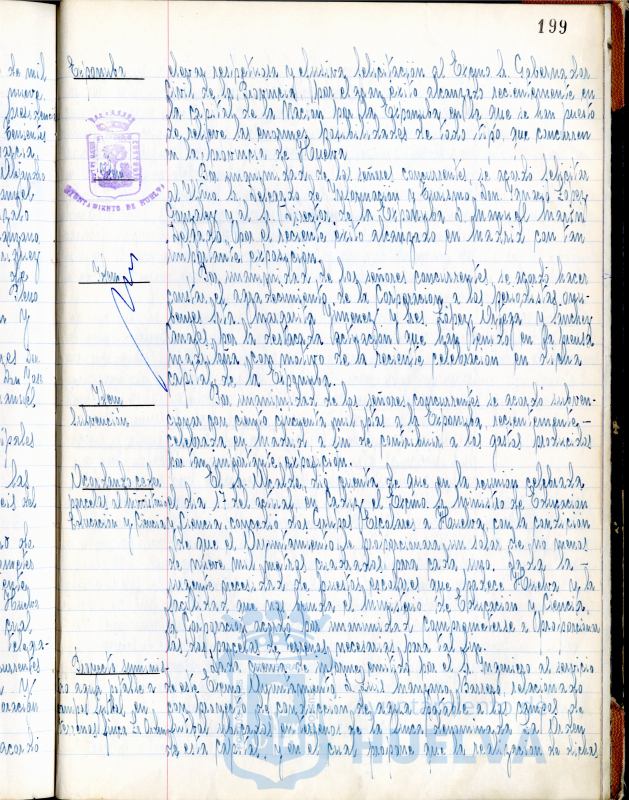 199
Expomba
elevar respetuosa y efusiva felicitación al Excmo Sr. Gobernador
Civil de la Provincia, por el gran éxito alcanzado recientemente en
la capital de la Nación por la Expomba, en la que se han puesto
de relieve las enormes posibilidades de todo tipo, que concurren
en la provincia de Huelva
Por unanimidad de los señores concurrentes, se acordó felicitar
al Sr. Delegado de Información y Turismo, Don
González y al Sr. Director de la Expomba D. Manuel Martín
por el reciente éxito alcanzado en Madrid con tan
importante exposición.
Idem
Por unanimidad de los señores concurrentes se acordó hacer
constar el agradecimiento de la Corporación a los periodistas onu-
benses Srta. Margarita Jimenez y Sres. López y Sánchez
por la destacada actuación que han tenido en la prensa
madrileña con motivo de la reciente celebración en dicha
capital de la Expomba.
Idem
subvención
Por unanimidad de los señores concurrentes se acordó subven-
cionar con ciento cincuenta mil ptas a la Expomba, recientemente
celebrada en Madrid a fin de contribuir a los gastos producidos
por tan importante exposición.
Acordando ceder
parcelas al Ministerio
Educación y Ciencia
El Sr. Alcalde, dió cuenta de que en la reunión celebrada
el día 17 del actual en Cádiz el Excmo. Sr. Ministro de Educación
y Ciencia concedió dos Grupos Escolares a Huelva, con la condición
de que el Ayuntamiento le proporcionara un solar de no menos
de nueve mil metros cuadrados para cada uno. Dada la
necesidad de puestos escolares que padece Huelva y la
facilidad que nos brinda el Ministerio de Educación y Ciencia
la Corporación acordó por unanimidad comprometerse a proporcionar
las dos parcelas de terreno necesarias para tal fin.
Proyecto suminis-
tro agua potable a
campos futbol en
terrenos finca La Orden
Dada cuenta de informe emitido por el Sr. Ingeniero al servicio
de este Excmo Ayuntamiento D. Luis Manzano Barrero, relacionado
con proyecto de conducción de agua potable a campos de
futbol ubicados en terrenos de la finca denominada La Orden
de esta capital, y en el cual propone que la realización de dichas
AYUNTAMIENTO DE HUELVA
Ayuntamiento
HUELVA